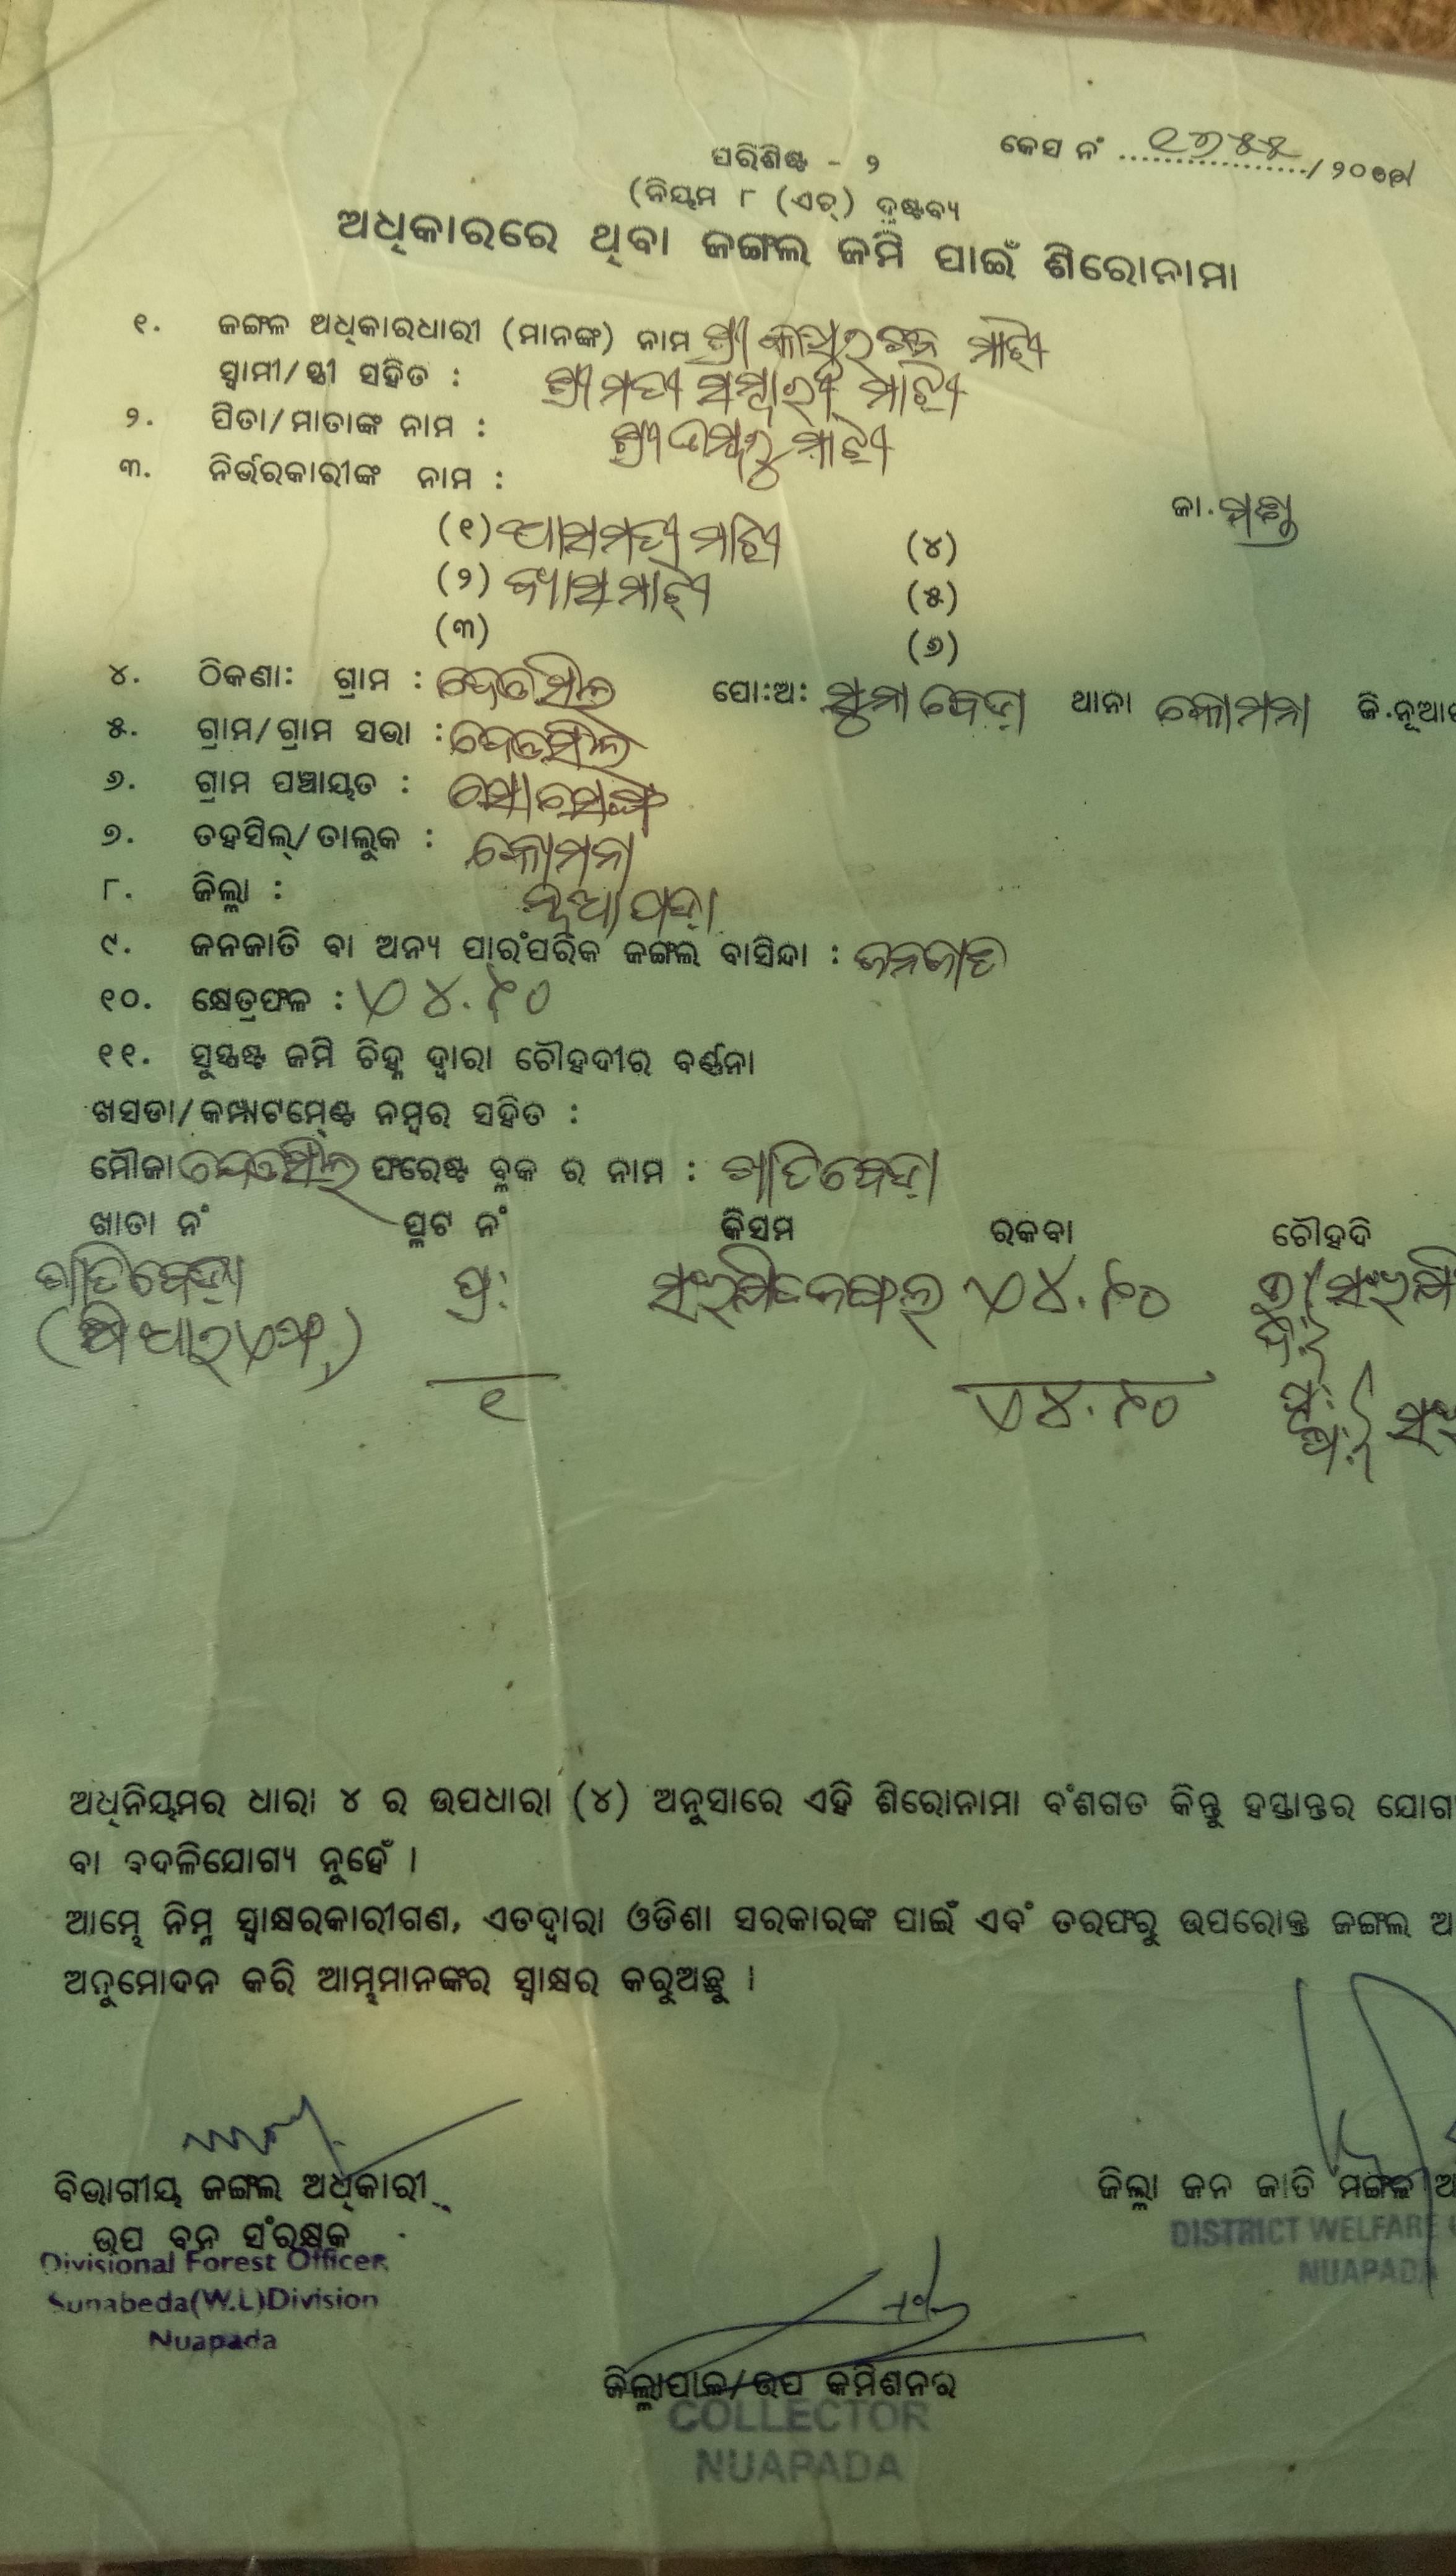 ପରିଶିଷ୍ଟ - ୨
କେସ ନଂ ୧୬୫୫ / ୨୦
(ନିୟମ ୮ (ଏଚ୍) ଦ୍ରଷ୍ଟବ୍ୟ
ଅଧିକାରରେ ଥିବା ଜଙ୍ଗଲ ଜମି ପାଇଁ ଶିରୋନାମା
୧. ଜଙ୍ଗଳ ଅଧିକାରଧାରୀ (ମାନଙ୍କ) ନାମ ଶ୍ରୀ ମାଝୀ
ସ୍ୱାମୀ/ସ୍ତ୍ରୀ ସହିତ : ଶ୍ରୀମତୀ ମାଝୀ
୨. ପିତା/ମାତାଙ୍କ ନାମ : ଶ୍ରୀ ଡମ୍ବରୁ ମାଝୀ
୩. ନିର୍ଭରକାରୀଙ୍କ ନାମ :
ଜା.
(୧) ଆସମତୀ ମାଝୀ (୪)
(୨) ବ୍ୟାସ ମାଝୀ (୫)
(୩) (୬)
୪. ଠିକଣା: ଗ୍ରାମ : ଢେକୁନସୀଲ ପୋ:ଅ: ସୁନାବେଡା ଥାନା କୋମନା ଜି.ନୂଆ
୫. ଗ୍ରାମ/ଗ୍ରାମ ସଭା :
୬. ଗ୍ରାମ ପଞ୍ଚାୟତ :
୭. ତହସିଲ୍/ତାଲୁକ : କୋମନା
୮. ଜିଲ୍ଲା : ନୂଆପଡ଼ା
୯. ଜନଜାତି ବା ଅନ୍ୟ ପାରଂପରିକ ଜଙ୍ଗଲ ବାସିନ୍ଦା : ଜନଜାତି
୧୦. କ୍ଷେତ୍ରଫଳ : ୪.୯୦
୧୧. ସୁସ୍ପଷ୍ଟ ଜମି ଚିହ୍ନ ଦ୍ୱାରା ଚୌହଦୀର ବର୍ଣ୍ଣନା
ଖସଡା/କମ୍ପାଟମେଣ୍ଟ ନମ୍ବର ସହିତ :
ମୌଜା ଫରେଷ୍ଟ ବ୍ଲକ ର ନାମ : ଖାତିବେଡ଼ା
ଖାତା ନଂ ପ୍ଲଟ ନଂ କିସମ ରକବା ଚୌହଦି
ଖାତିବେଡ଼ା ପ୍ର: ସଂରକ୍ଷିତ ଜଙ୍ଗଲ ୪.୯୦
୧ ୪.୯୦
ଅଧିନିୟମର ଧାରା ୪ ର ଉପଧାରା (୪) ଅନୁସାରେ ଏହି ଶିରୋନାମା ବଂଶଗତ କିନ୍ତୁ ହସ୍ତାନ୍ତର ଯୋଗ
ବା ବଦଳିଯୋଗ୍ୟ ନୁହେଁ ।
ଆମ୍ଭେ ନିମ୍ନ ସ୍ୱାକ୍ଷରକାରୀଗଣ, ଏତଦ୍ୱାରା ଓଡିଶା ସରକାରଙ୍କ ପାଇଁ ଏବଂ ତରଫରୁ ଉପରୋକ୍ତ ଜଙ୍ଗଲ ଅ
ଅନୁମୋଦନ କରି ଆମ୍ଭମାନଙ୍କର ସ୍ୱାକ୍ଷର କରୁଅଛୁ ।
ବିଭାଗୀୟ ଜଙ୍ଗଲ ଅଧିକାରୀ
ଉପ ବନ ସଂରକ୍ଷକ
Divisional Forest Officer,
Sunabeda(W.L)Division
Nuapada
ଜିଲ୍ଲା ଜନ ଜାତି ମଙ୍ଗଳ ଅ
DISTRICT WELFARE
NUAPADA
ଜିଲ୍ଲାପାଳ/ଉପ କମିଶନର
COLLECTOR
NUAPADA